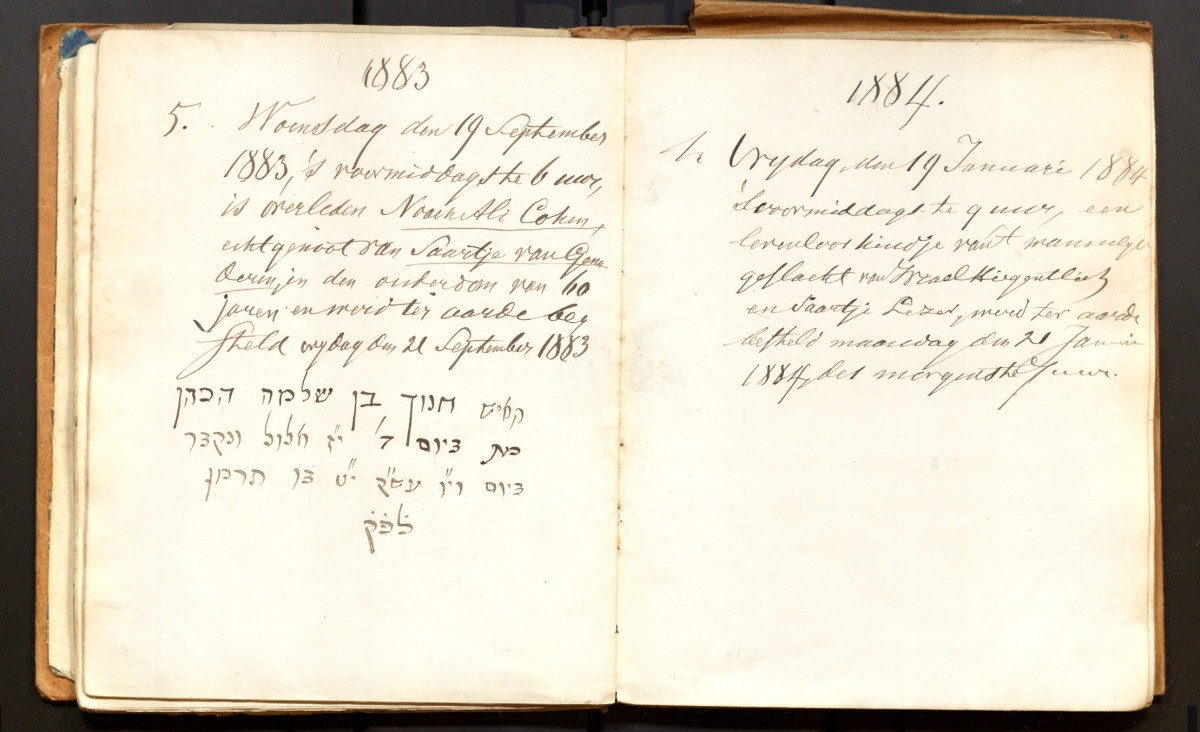 1883
5. Woensdag den 19 September
1883, 's voormiddags te 6 uur,
is overleden Noach Ali Cohen,
echtgenoot van Saartje van Gen-
deringen in den ouderdom van 60
jaren en werd ter aarde be
steld vrydag den 21 September 1883
האיש חנוך בן שלמה הכהן
מת ביום ד' י"ז אלול ונקבר
ביום וי"ו עש"ק י"ט בו תרמג
לפק
1884.
1. Vrydag, den 19 Januari 1884
's voormiddags te 9 uur, een
levenloos kindje van 't mannelyk
geslacht van Izrael
en Saartje Lezer, werd ter aarde
besteld maandag den 21 Januari
1884, des morgens te uur.